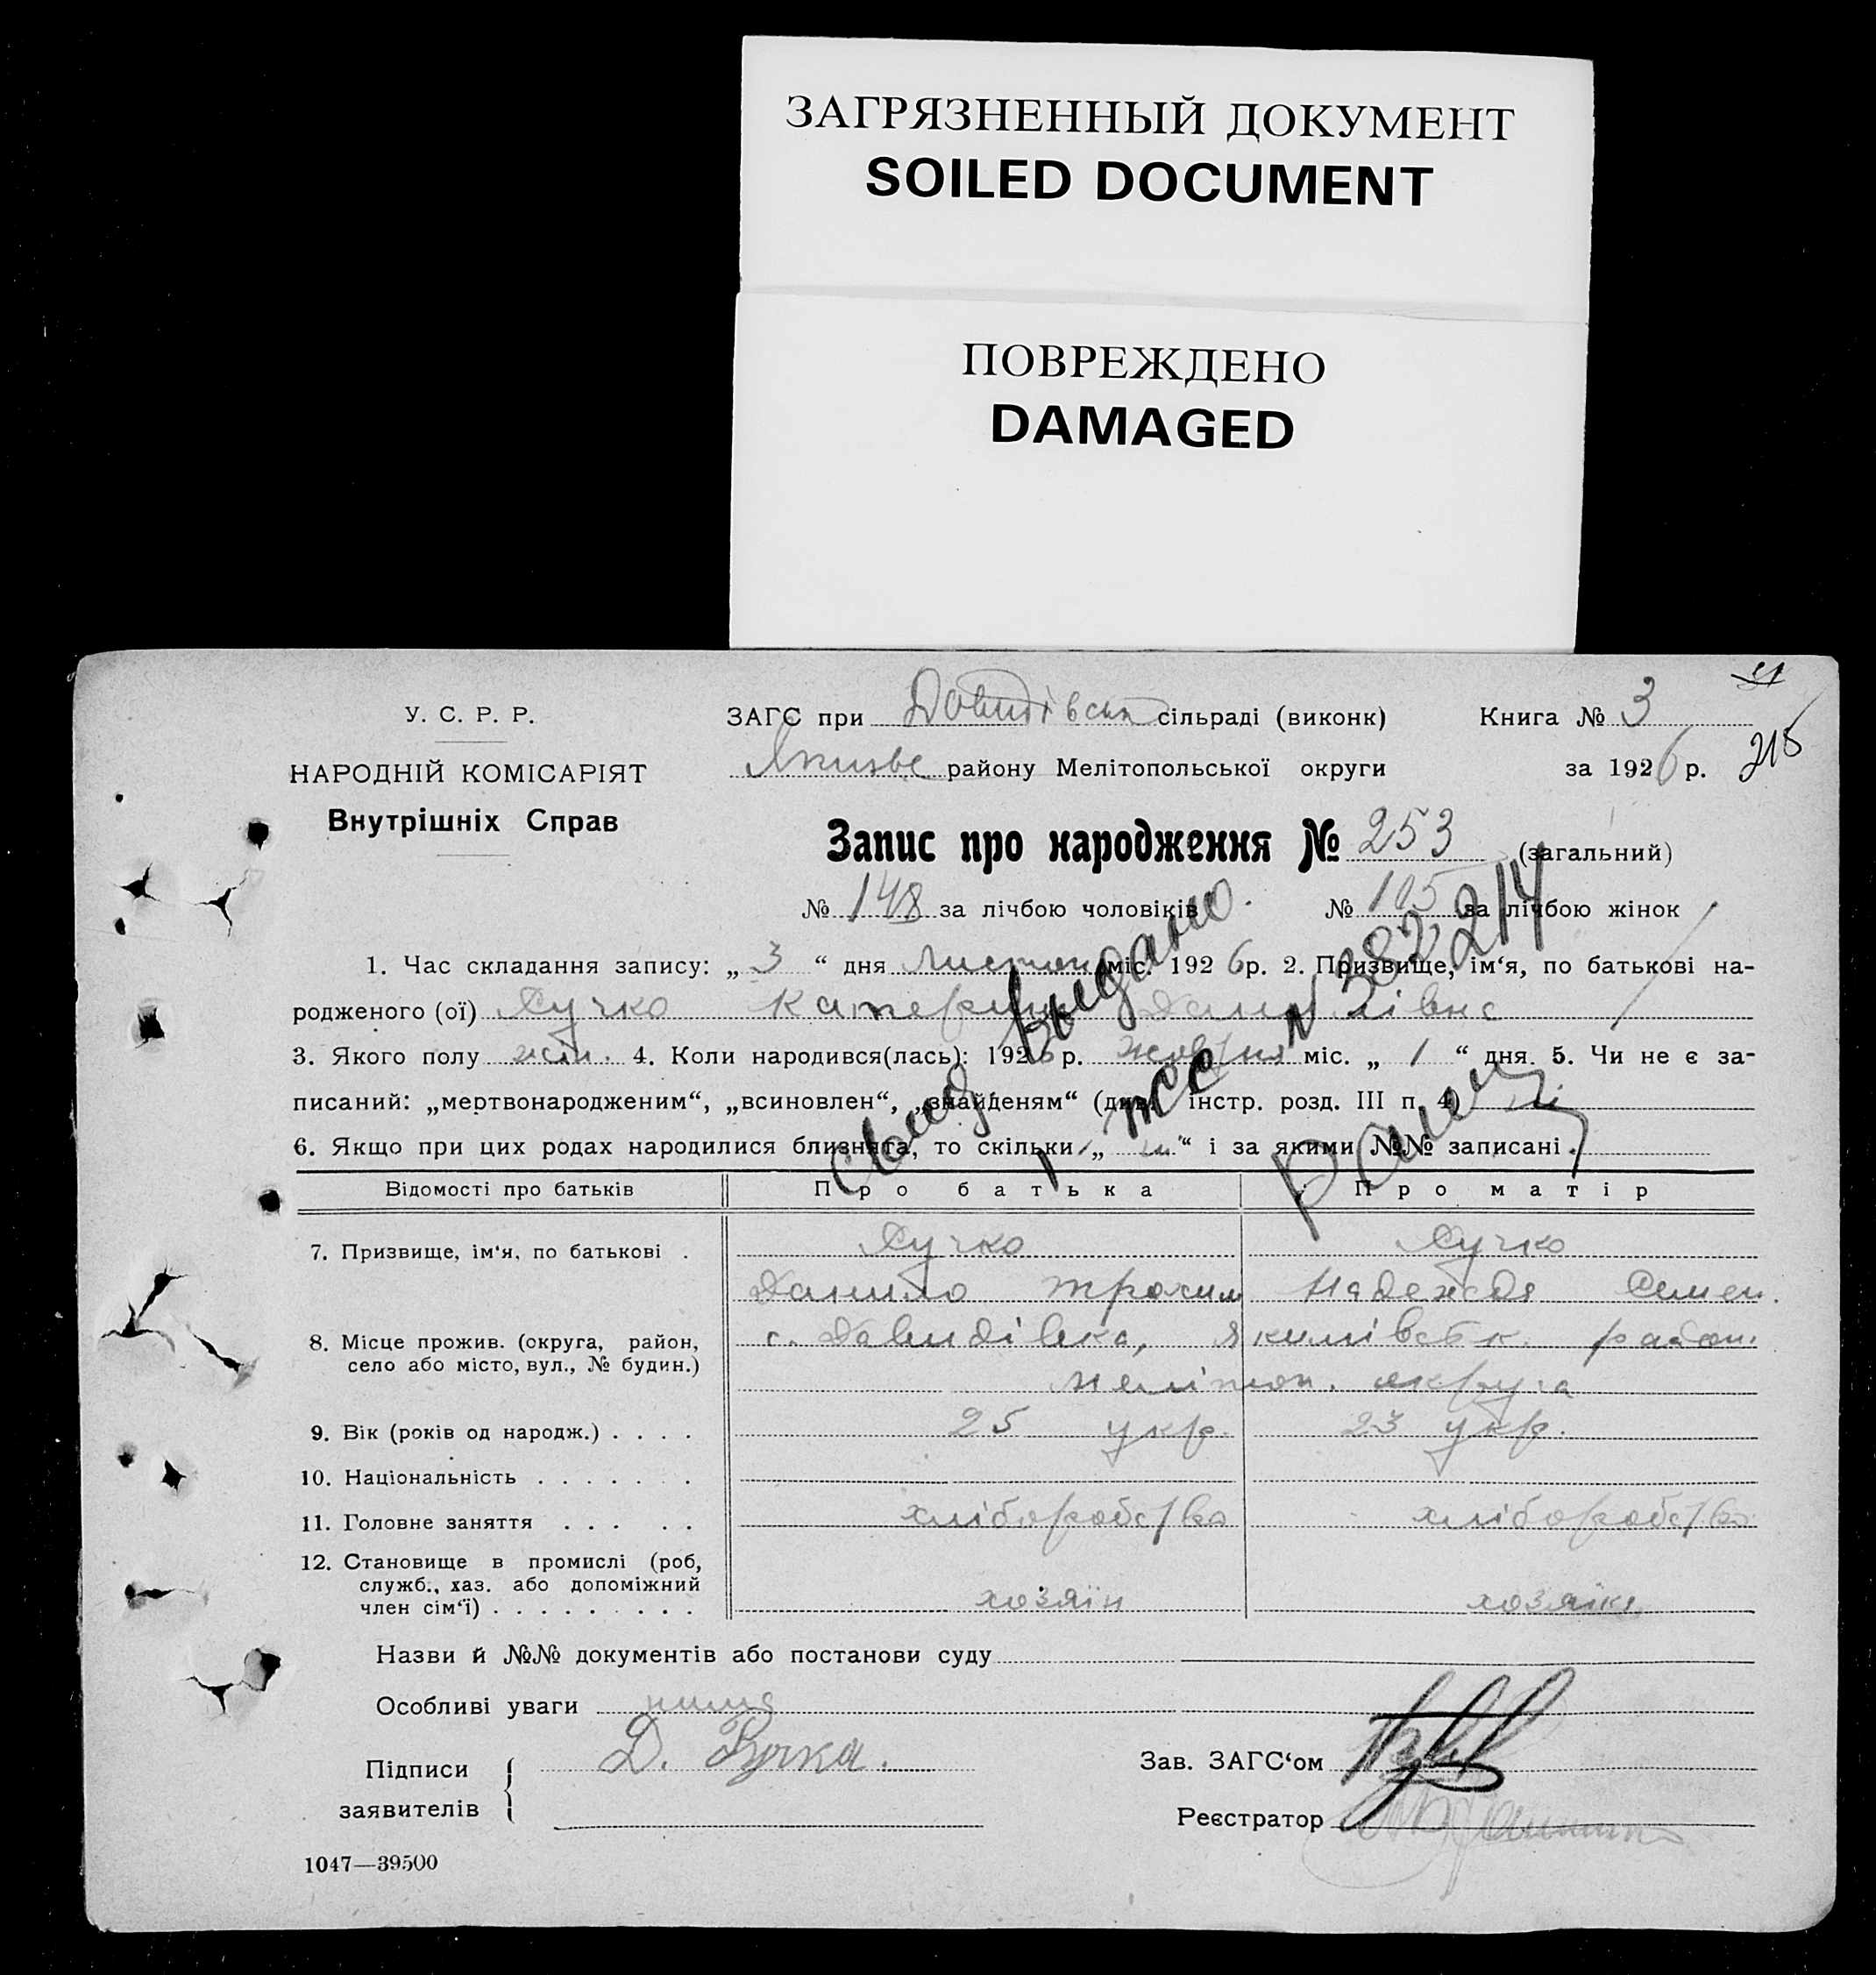 ЗАГРЯЗНЕННЫЙ ДОКУМЕНТ
SOILED DOCUMENT
ПОВРЕЖДЕНО
DAMAGED
У. С. Р. Р.
НАРОДНІЙ КОМІСАРІЯТ
Внутрішніх Справ
ЗАГС при Давидівськ сільраді (виконк)
Книга № 3
району Мелітопольської округи
за 1926 р.
215
Запис про народження № 253 (загальний)
№ 148 за лічбою чоловіків № 105 за лічбою жінок
1. Час складання запису: „ 3 “ дня Листоп міс. 1926 р. 2. Призвище, ім‘я, по батькові на-
родженого (ої) Лучко Катерина Данилівна
3. Якого полу жін. 4. Коли народився(лась): 1926 р. жовтня міс. „ 1 “ дня. 5. Чи не є за-
писаний: „мертвонародженим“, „всиновлен“, „знайденям“ (див. інстр. розд. III п. 4) ні
6. Якщо при цих родах народилися близнята, то скільки „ “ і за якими №№ записані
Свид выдано
N 382214
Відомості про батьків Про батька Про матір
7. Призвище, ім‘я, по батькові . Лучко Лучко
Данило Трохим Надежда Семен.
8. Місце прожив. (округа, район, с. Давидівка, Якимівськ. район.
село або місто, вул., № будин.)
Мелітоп. округа
9. Вік (років од народж.) . . . . 25 укр. 23 укр.
10. Національність . . . . . . .
11. Головне заняття . . . . . хліборобство хліборобство
12. Становище в промислі (роб,
служб., хаз. або допоміжний
член сім‘ї) . . . . . . . . . хозяїн хозяйка
Назви й №№ документів або постанови суду
Особливі уваги нима
Підписи
заявителів
Д. Лучка.
Зав. ЗАГС‘ом
Реєстратор
1047—39500